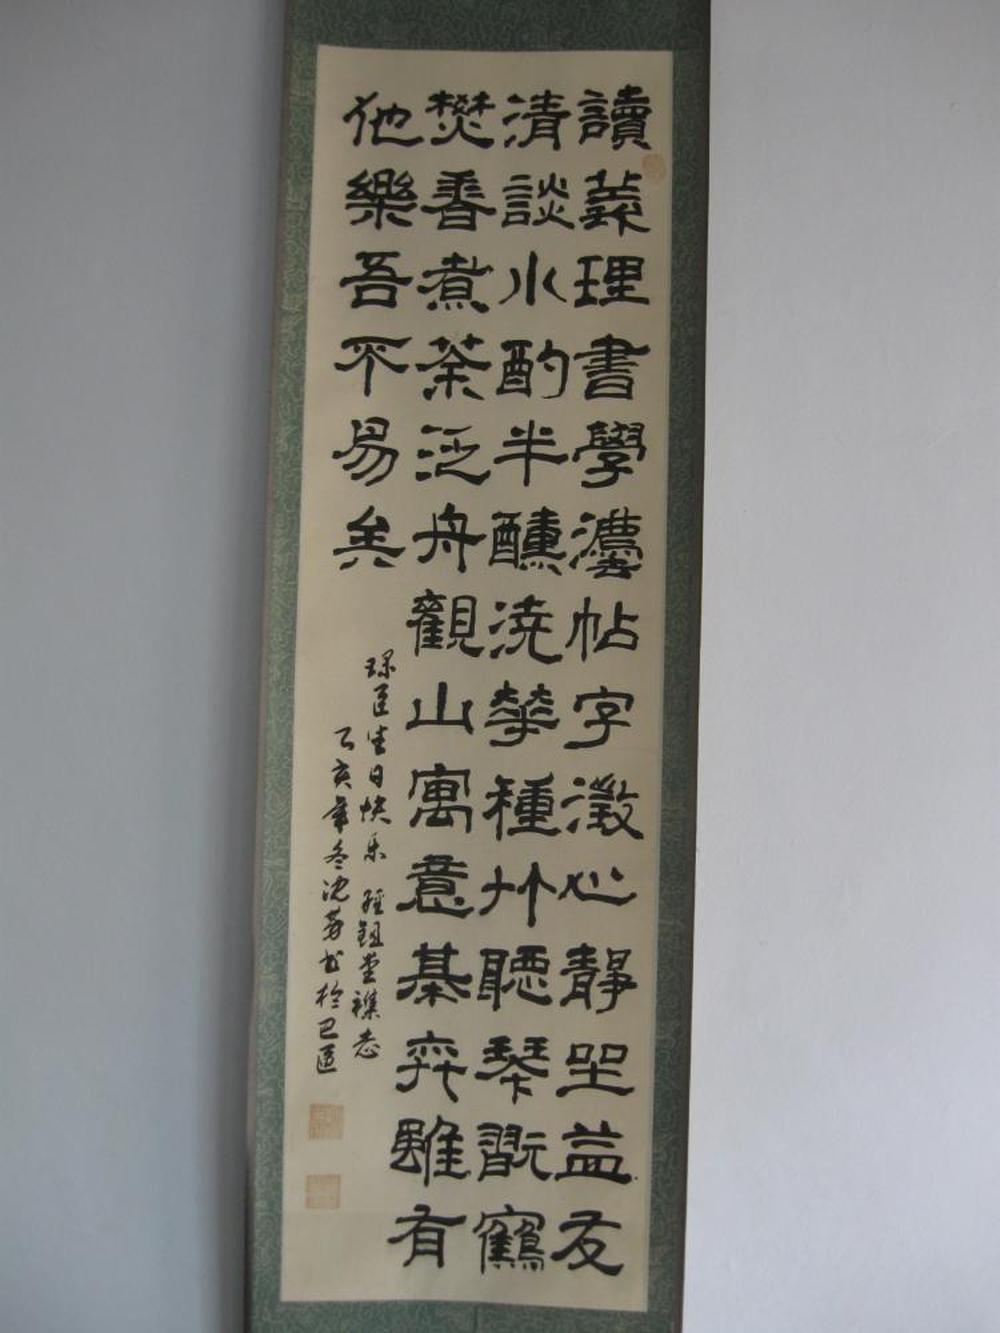 讀義理書學灋帖字澂心靜坐益友
清談小酌半醺澆華種竹聽琴翫鶴
焚香煮茶泛舟觀山寓意棊弈雖有
他樂吾不易矣
琭匡生日快乐 經鉏堂襍志
乙亥年冬沈芳书於巴匡